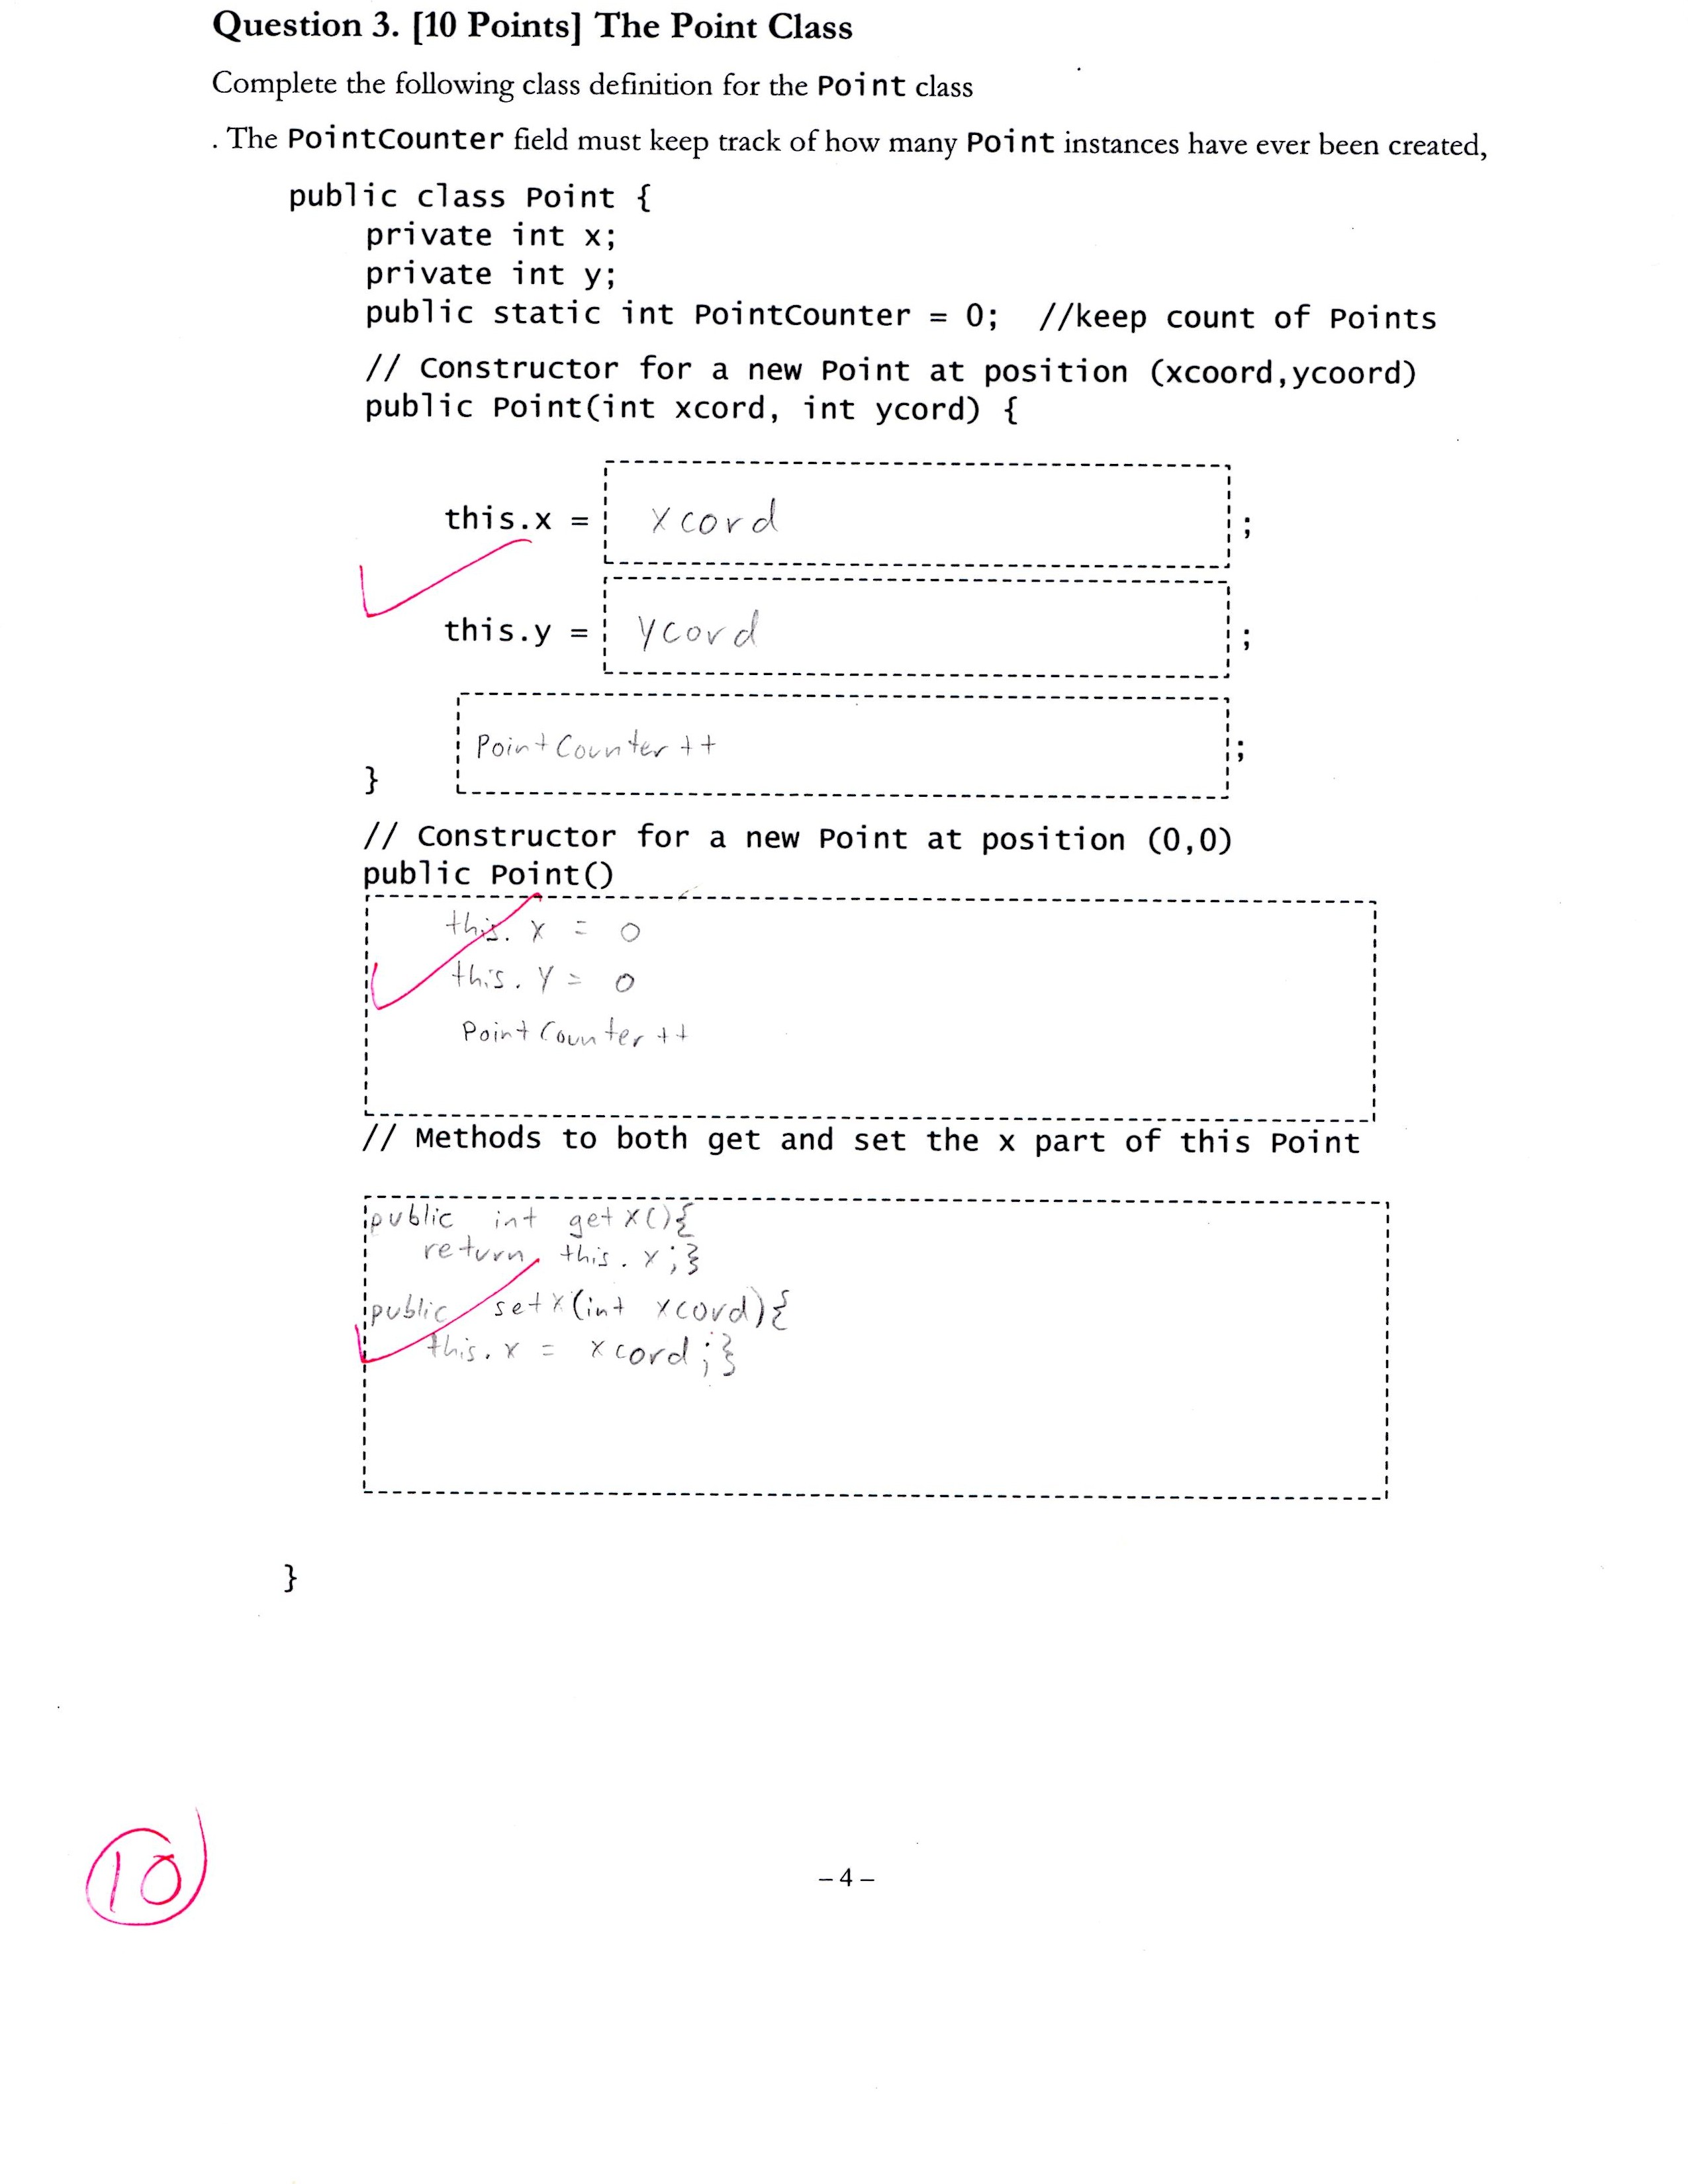 Question 3. [10 Points] The Point Class
Complete the following class definition for the Point class
. The PointCounter field must keep track of how many Point instances have ever been created,
public class Point {
private int x;
private int y;
public static int PointCounter = 0; //keep count of Points
// Constructor for a new Point at position (xcoord,ycoord)
public Point(int xcord, int ycord) {
this.x = xcord ;
this.y = ycord ;
PointCounter++ ;
}
// Constructor for a new Point at position (0,0)
public Point()
this.x = 0
this.y = 0
PointCounter++
// Methods to both get and set the x part of this Point
public int getX(){
return this.x;}
public setX(int xcord){
this.x = xcord;}
}
10
– 4 –